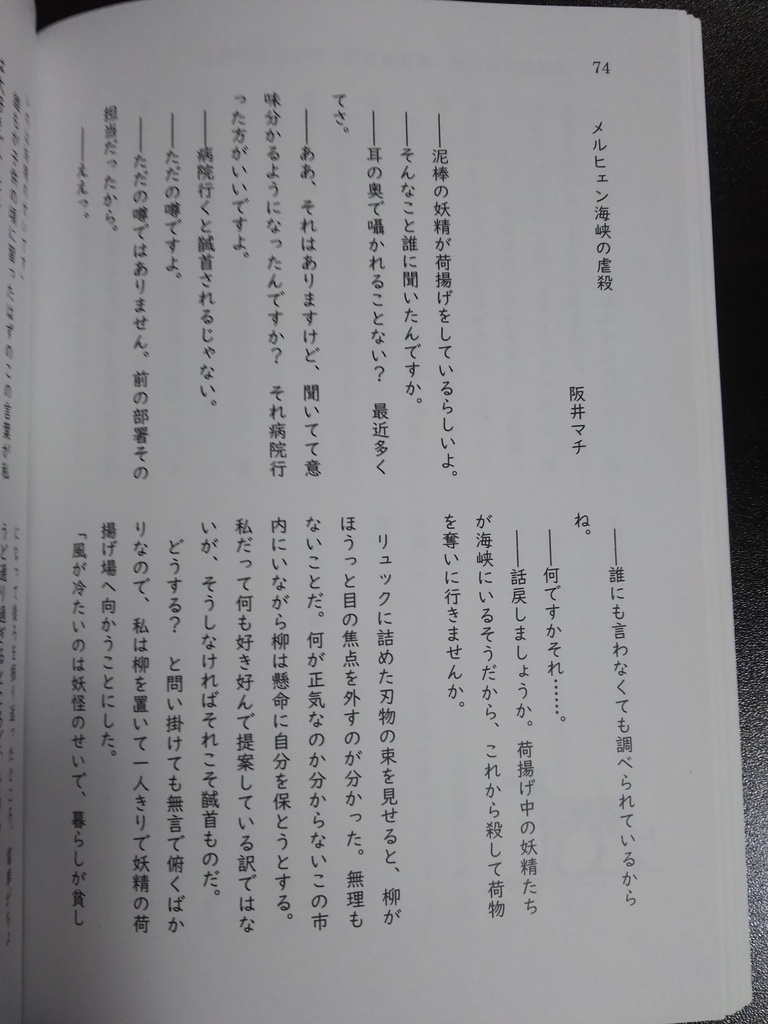 74
メルヒェン海峡の虐殺
阪井マチ
――泥棒の妖精が荷揚げをしているらしいよ。
――そんなこと誰に聞いたんですか。
――耳の奥で囁かれることない？　最近多く
てさ。
――ああ、それはありますけど、聞いてて意
味分かるようになったんですか？　それ病院行
った方がいいですよ。
――病院行くと馘首されるじゃない。
――ただの噂ですよ。
――ただの噂ではありません。前の部署その
担当だったから。
――ええっ。
――誰にも言わなくても調べられているから
ね。
――何ですかそれ……。
――話戻しましょうか。荷揚げ中の妖精たち
が海峡にいるそうだから、これから殺して荷物
を奪いに行きませんか。
リュックに詰めた刃物の束を見せると、柳が
ほうっと目の焦点を外すのが分かった。無理も
ないことだ。何が正気なのか分からないこの市
内にいながら柳は懸命に自分を保とうとする。
私だって何も好き好んで提案している訳ではな
いが、そうしなければそれこそ馘首ものだ。
どうする？　と問い掛けても無言で俯くばか
りなので、私は柳を置いて一人きりで妖精の荷
揚げ場へ向かうことにした。
「風が冷たいのは妖怪のせいで、暮らしが貧し